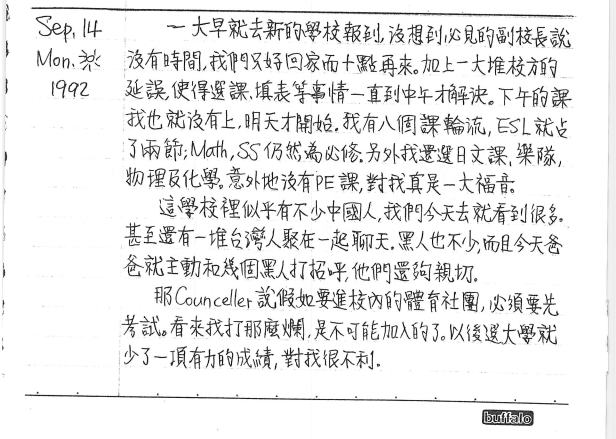 Sep. 14
Mon.
1992
一大早就去新的學校報到, 沒想到必見的副校長說
沒有時間, 我們只好回家而十點再來。加上一大堆校方的
延誤, 使得選課、填表等事情一直到中午才解決。下午的課
我也就沒有上, 明天才開始。我有八個課輪流, ESL就占
了兩節; Math, SS仍然為必修。另外我還選日文課, 樂隊,
物理及化學。意外地沒有PE課, 對我真是一大福音。
這學校裡似乎有不少中國人, 我們今天去就看到很多。
甚至還有一堆台灣人聚在一起聊天。黑人也不少, 而且今天爸
爸就主動和幾個黑人打招呼, 他們還夠親切。
那Counceller說假如要進校內的體育社團, 必須要先
考試。看來我打那麼爛, 是不可能加入的了。以後選大學就
少了一項有力的成績, 對我很不利。
buffalo